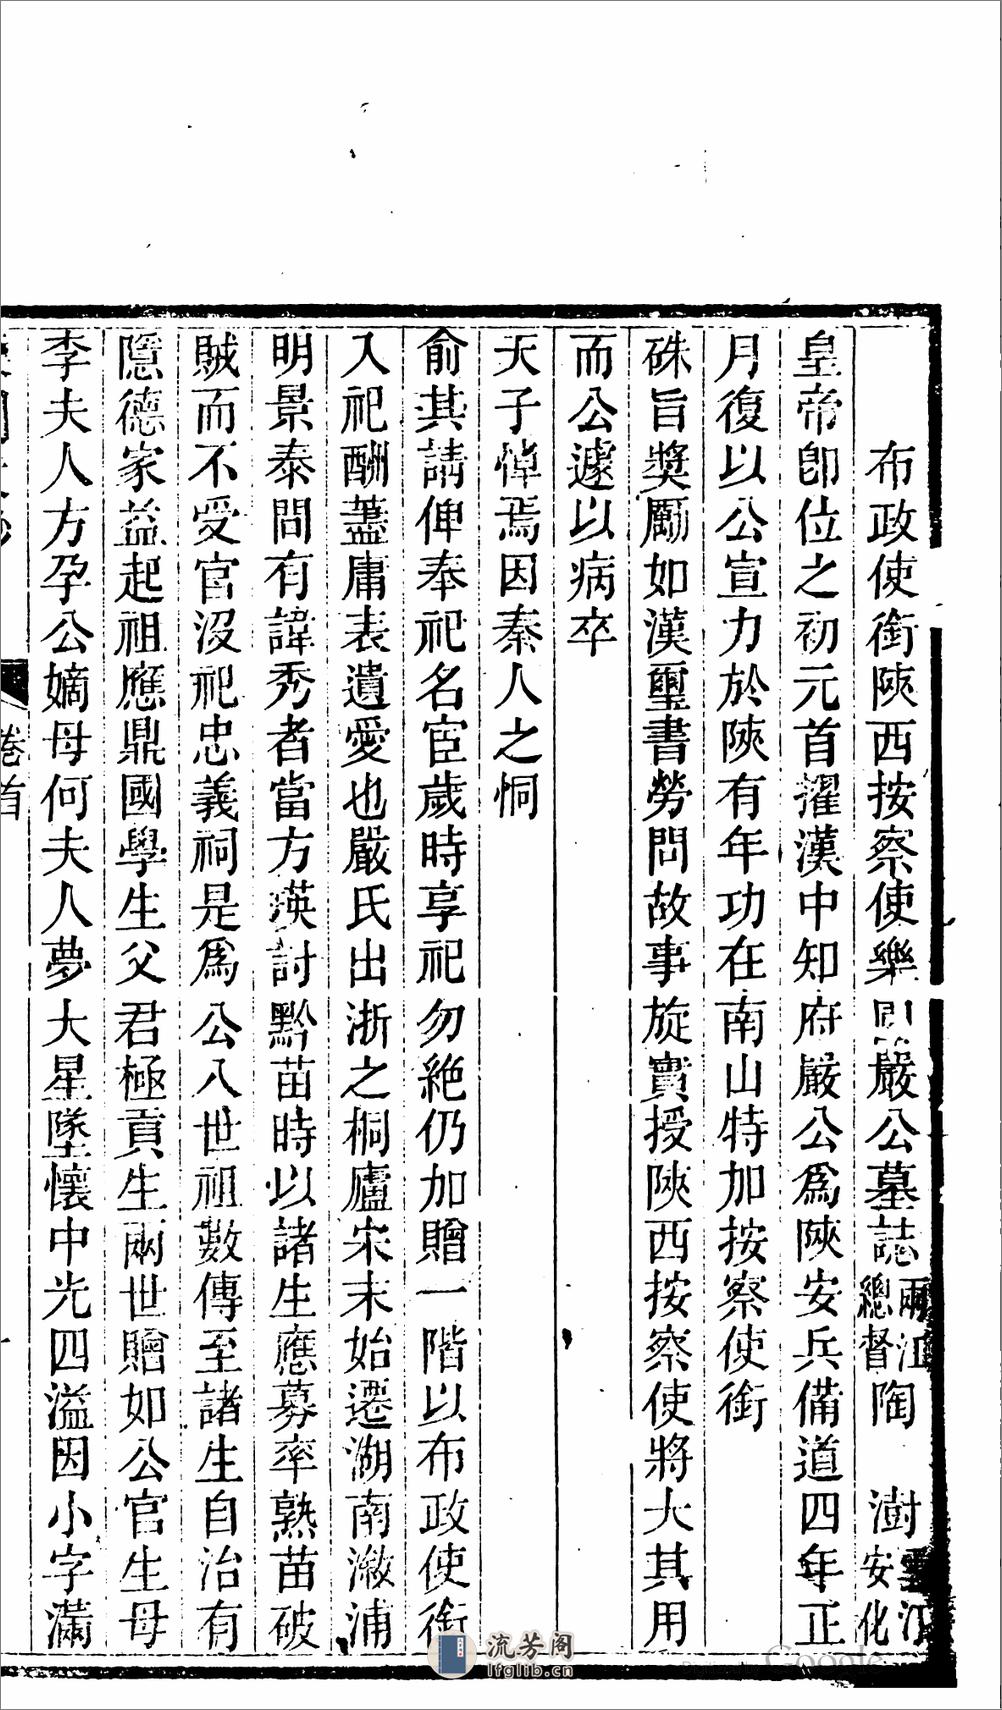 布政使銜陝西按察使樂園嚴公墓誌兩江總督陶 澍雲汀安化
皇帝卽位之初元首擢漢中知府嚴公爲陝安兵備道四年正
月復以公宣力於陝有年功在南山特加按察使銜
硃旨獎勵如漢璽書勞問故事旋實授陝西按察使將大其用
而公遽以病卒
天子悼焉因秦人之恫
俞其請俾奉祀名宦歲時享祀勿絶仍加贈一階以布政使銜
入祀酬藎庸表遺愛也嚴氏出浙之桐廬宋末始遷湖南漵浦
明景泰間有諱秀者當方瑛討黔苗時以諸生應募率熟苗破
賊而不受官沒祀忠義祠是爲公八世祖數傳至諸生自治有
隱德家益起祖應鼎國學生父君極貢生兩世贈如公官生母
李夫人方孕公嫡母何夫人夢大星墜懷中光四溢因小字滿
卷首
流芳阁
lfglib.cn
Google